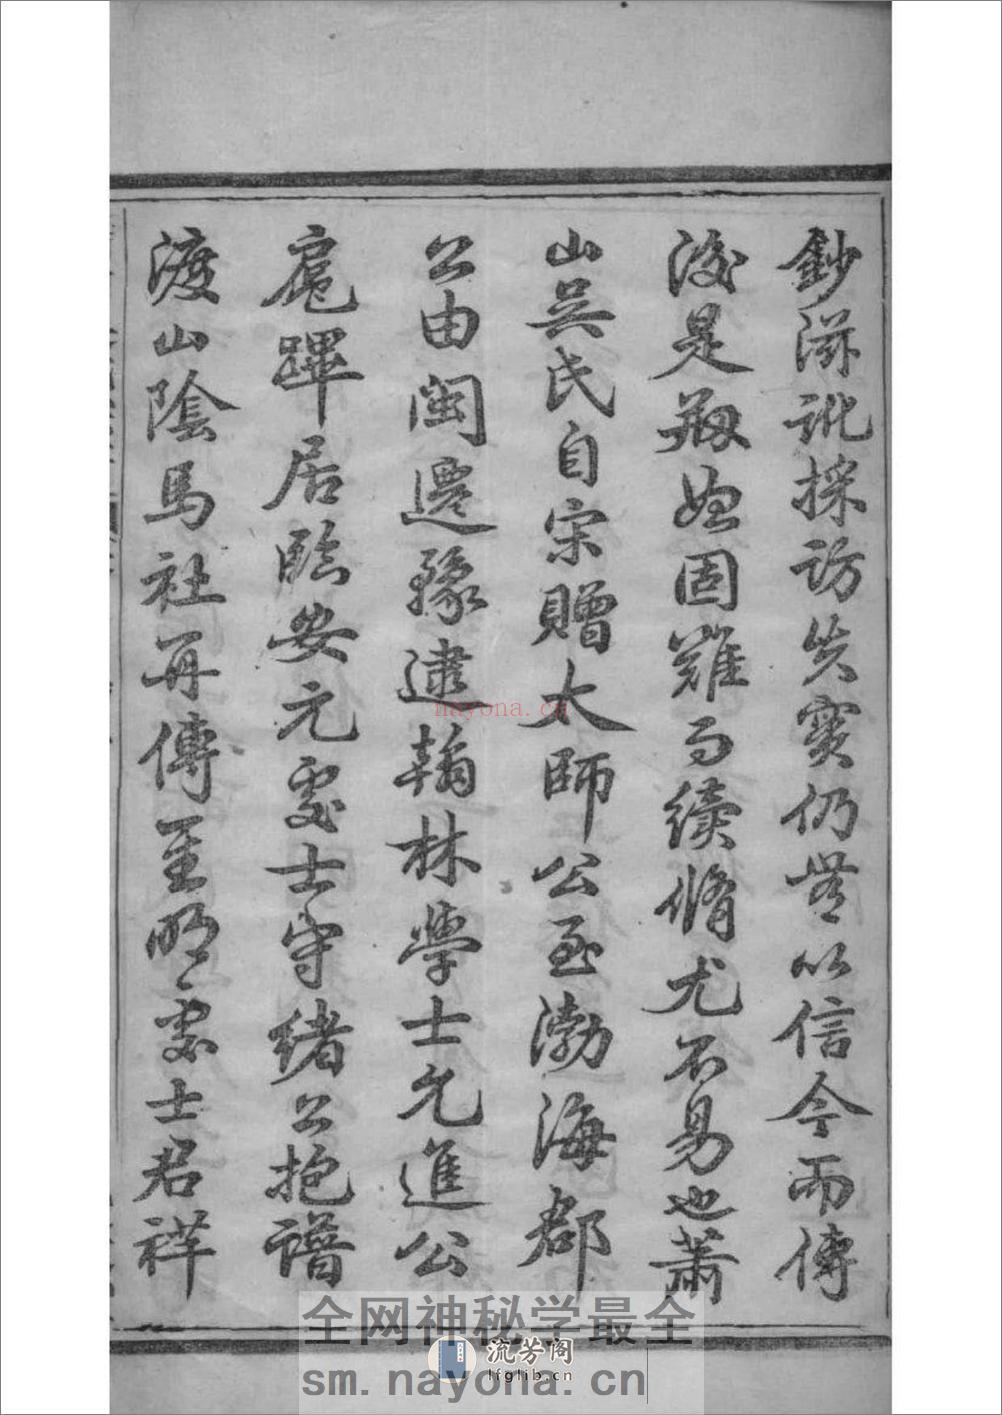 鈔滋訛採訪失實仍無以信今而傳
後是刱始固難而續脩尤不易也蕭
山吳氏自宋贈太師公至渤海郡
公由閩遷豫逮翰林學士允進公
扈蹕居臨安元處士守緒公抱譜
渡山陰馬社再傳至明處士君祥
nayona.cn
全网神秘学最全
流芳阁
lfglib.cn
sm.nayona.cn